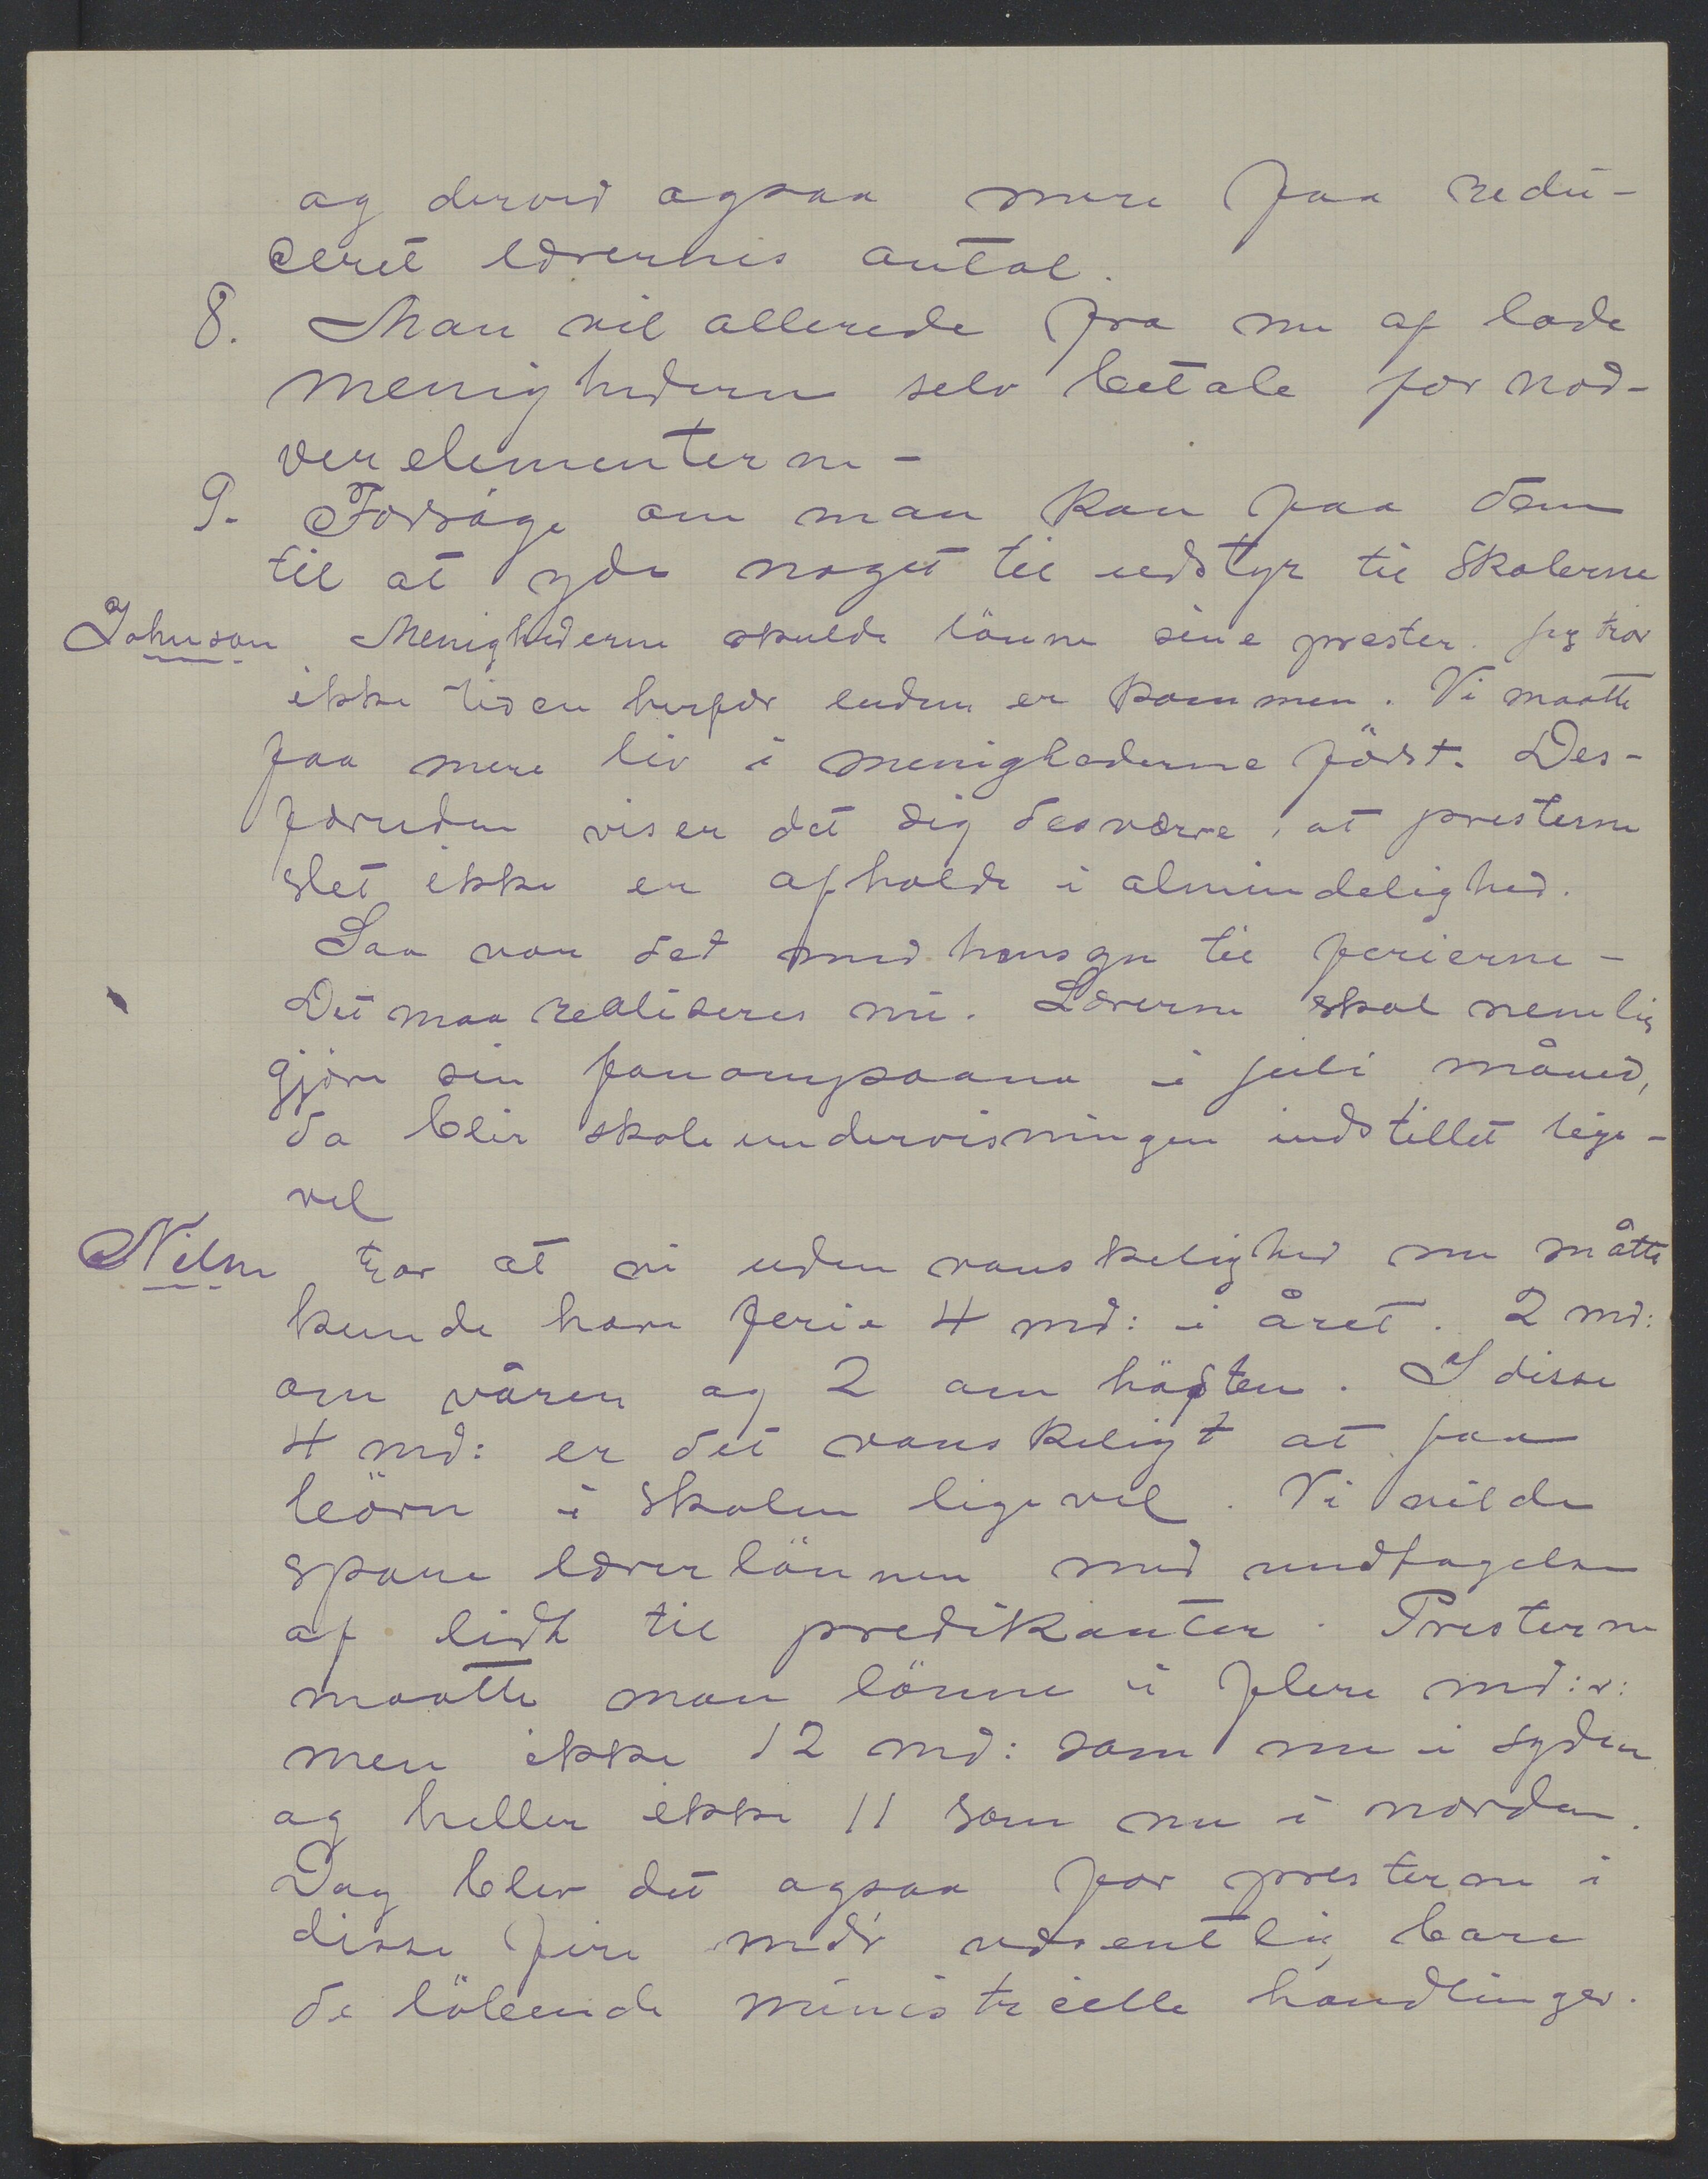 og derved ogsaa mere faa redu-
ceret lærernes antal.
8. Man vil allerede fra nu af lade
menighederne selv betale for nad-
verelementerne -
9. Forsöge om man kan faa dem
til at yde noget til udstyr til skolerne
Johnson Menighederne skulde lönne sine prester. Jeg tror
ikke tiden herfor endnu er kommen. Vi maatte
faa mere liv i menighederne först. Des-
foruden viser det sig desværre, at presterne
slet ikke er afholdt i almindelighed.
Saa var det med hensyn til ferierne -
Det maa realiseres nu. Lærerne skal nemlig
gjöre sin fanompoana i juli måned,
da blir skoleundervisningen indstillet lige-
vel
Nilsen tror at vi uden vanskelighed nu måtte
kunde have ferie 4 md: i året. 2 md:
om våren og 2 om hösten. I disse
4 md: er det vanskeligt at faa
börn i skolen ligevel. Vi vilde
spare lærerlönnen med undtagelse
af lidt til predikanter. Presterne
maatte man lönne i flere md:r:
men ikke 12 md: som nu i syden
og heller ikke 11 som nu i norden.
Dog blev det ogsaa for presterne i
disse fire mdr væsentlig bare
de löbende ministrielle handlinger.